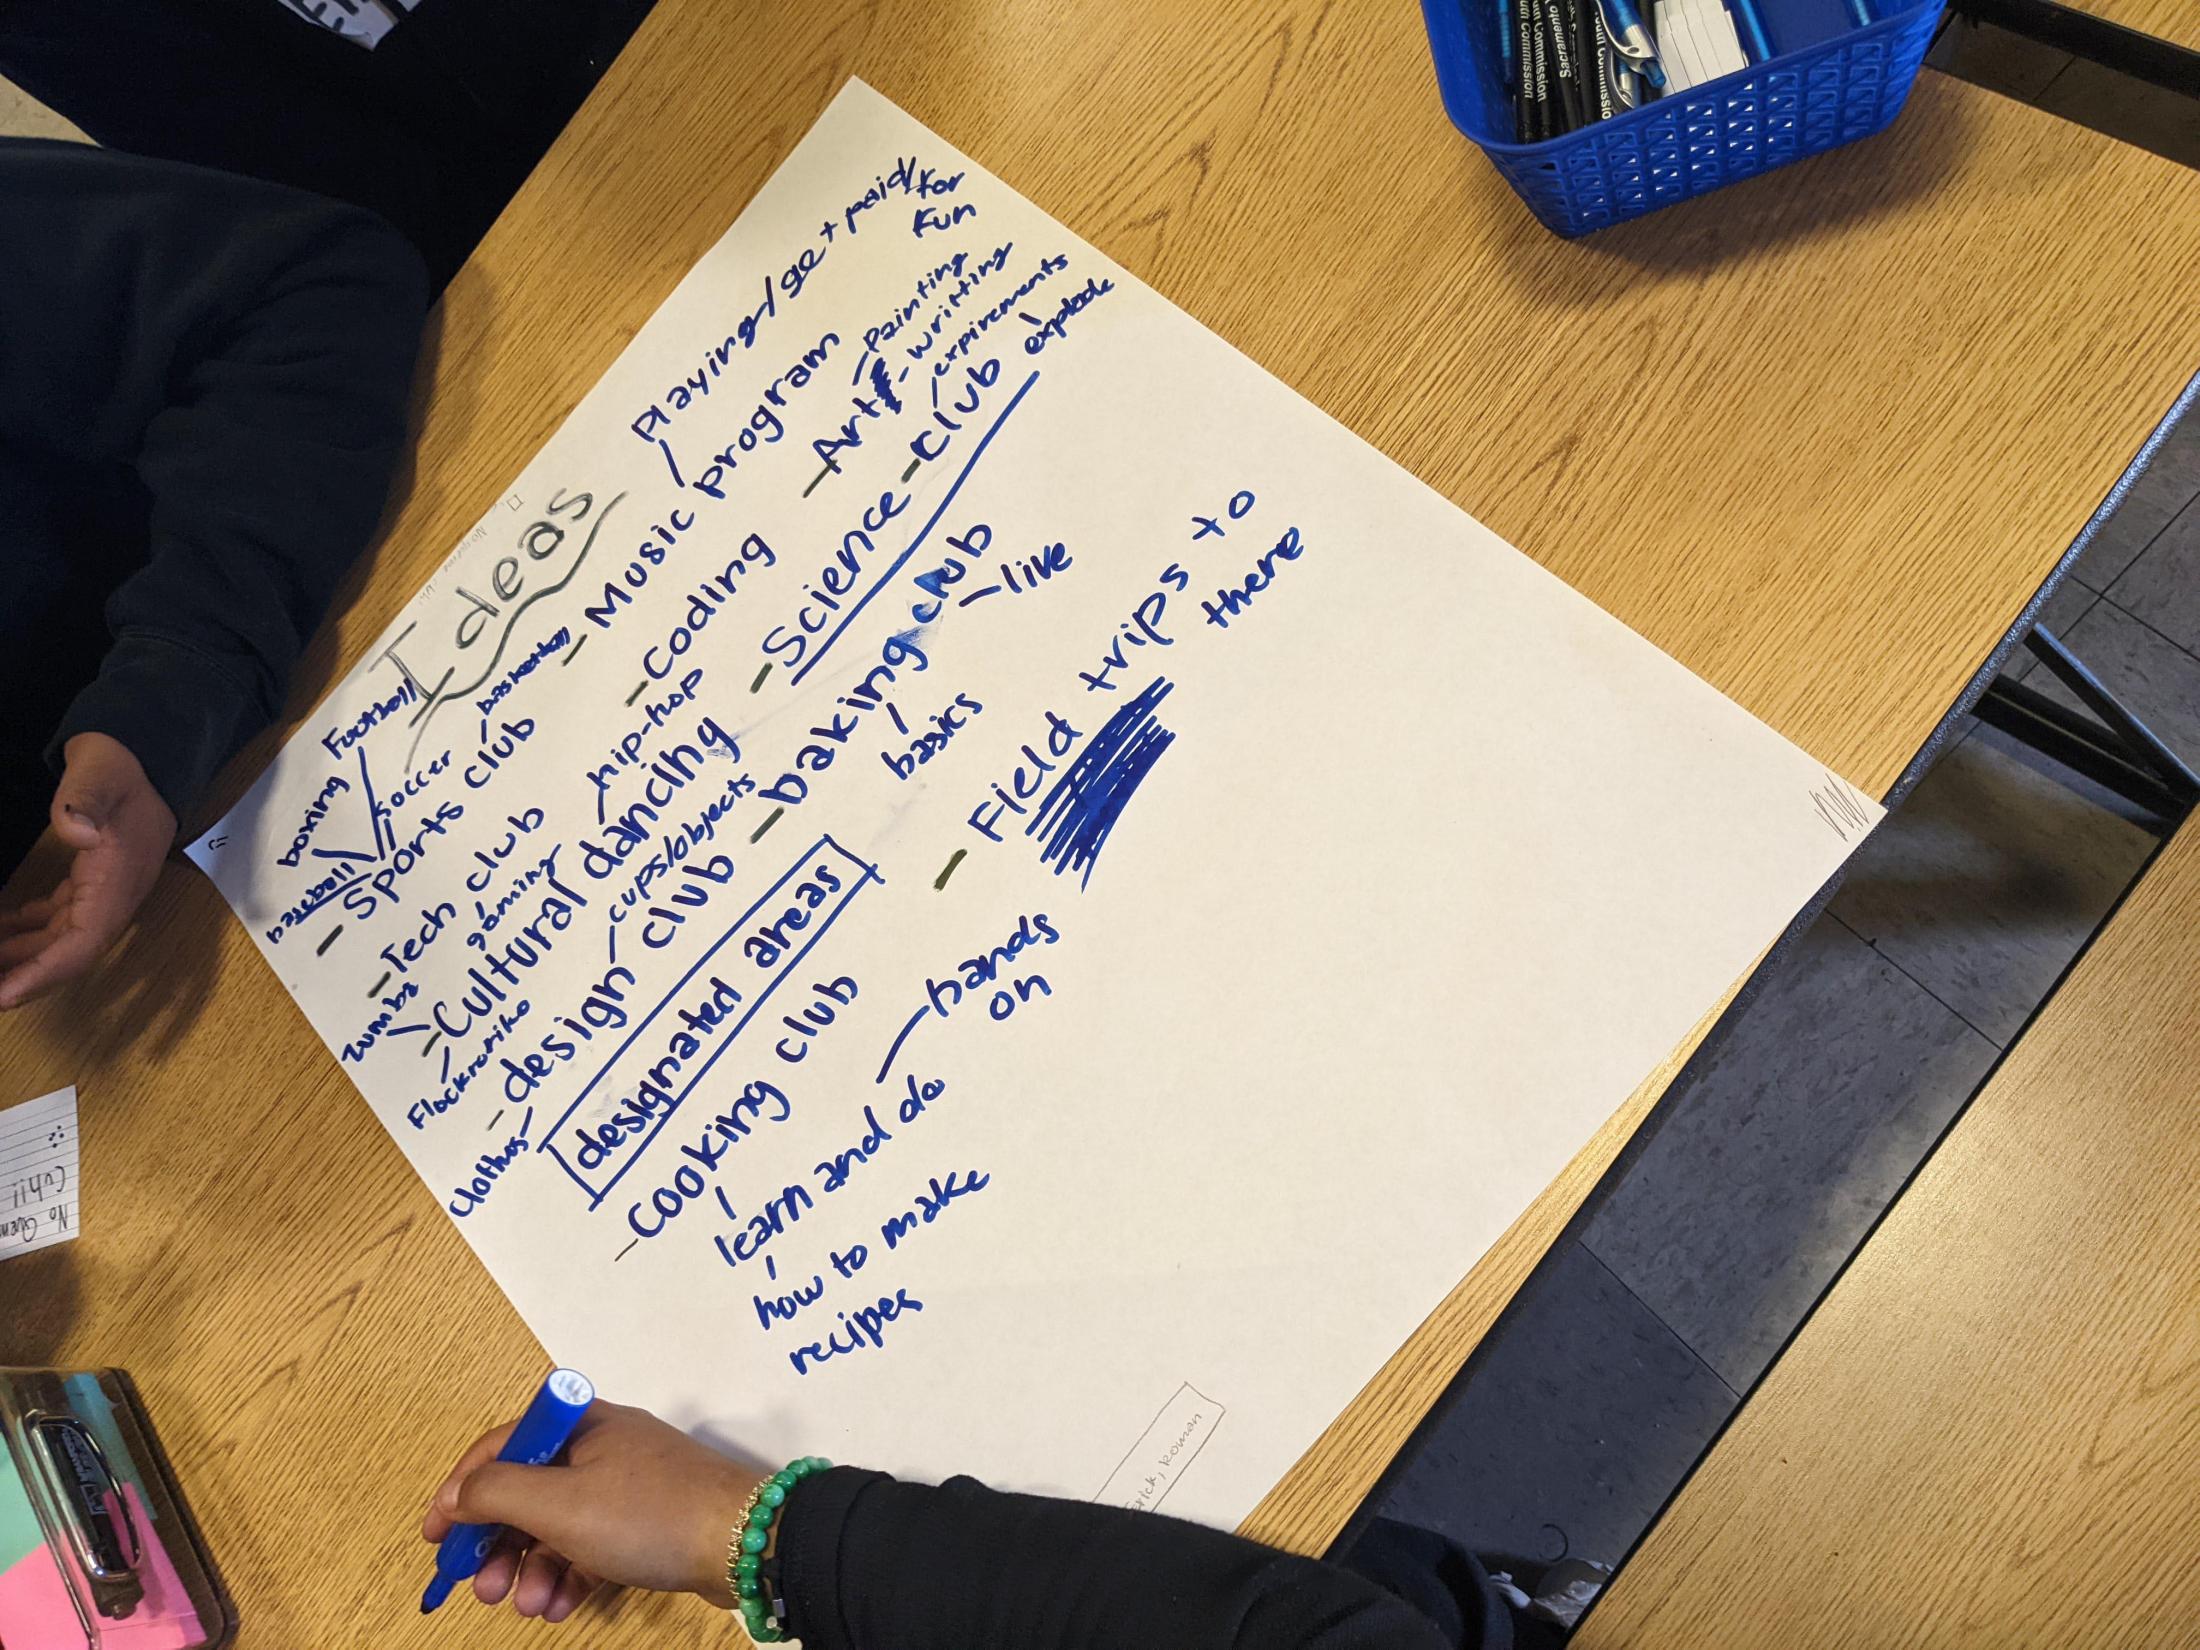 Ideas
Football
boxing
soccer
basketball
baseball
- Sports club
- Music program
Playing/get paid/for
fun
- Tech club
gaming
- Coding
- Art
- Painting
- writting
- Cultural dancing
zumba
hip-hop
- Science - club
expirements
explode
- design club
cups/objects
clothes
- baking club
basics
- like
designated areas
- Cooking club
learn and do
hands
on
how to make
recipes
- Field trips to
there
Erick, Roman
No
Cuh!!
Sacramento
Youth Commission